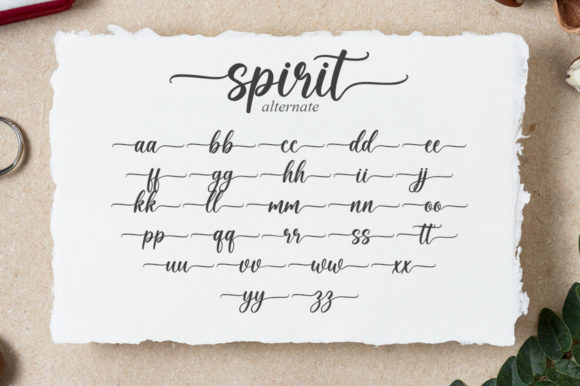 spirit
alternate
aa bb cc dd ee
ff gg hh ii jj
kk ll mm nn oo
pp qq rr ss tt
uu vv ww xx
yy zz